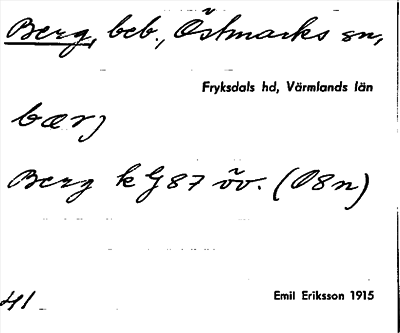 Berg, beb., Östmarks sn,
Fryksdals hd, Värmlands län
bærj
Berg k G87 öv. (O8n)
41
Emil Eriksson 1915